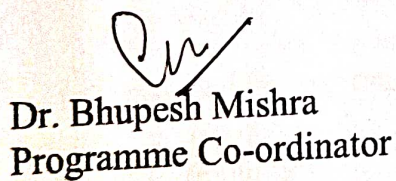 Dr. Bhupesh Mishra
Programme Co-ordinator